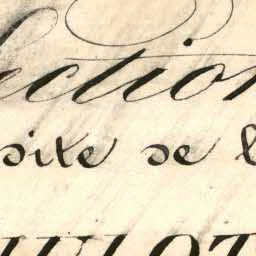 ection
site de l
ULOT